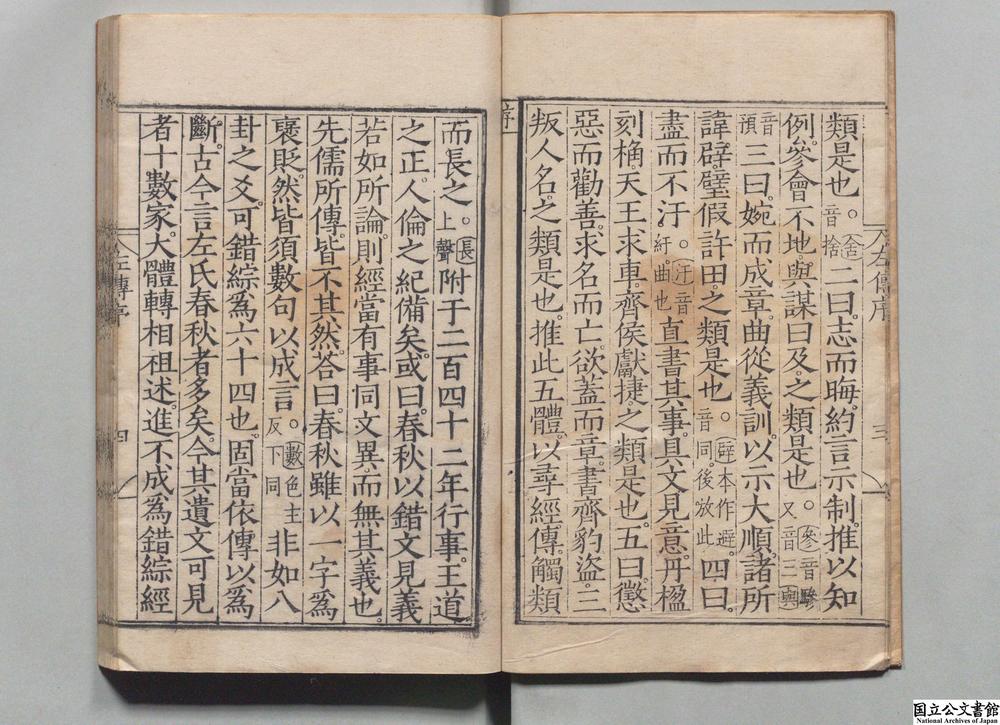 類是也。舍音捨二曰。志而晦。約言示制。推以知
例。參會不地。與謀曰及。之類是也。參音驂又音三與
音預三曰。婉而成章。曲從義訓。以示大順。諸所
諱辟。璧假許田。之類是也。辟本作避音同。後放此四曰。
盡而不汙。汙音紆。曲也直書其事。具文見意。丹楹
刻桷。天王求車。齊侯獻捷。之類是也。五曰懲
惡而勸善。求名而亡。欲蓋而章。書齊豹盜。三
叛人名。之類是也。推此五體。以尋經傳。觸類
左傳序 三
而長之。長上聲附于二百四十二年行事。王道
之正。人倫之紀備矣。或曰。春秋以錯文見義。
若如所論。則經當有事同文異。而無其義也。
先儒所傳。皆不其然。荅曰。春秋雖以一字爲
襃貶。然皆須數句以成言。數色主反下同非如八
卦之爻。可錯綜爲六十四也。固當依傳以爲
斷。古今言左氏春秋者多矣。今其遺文可見
者十數家。大體轉相祖述。進不成爲錯綜經
左傳序 四
国立公文書館
National Archives of Japan